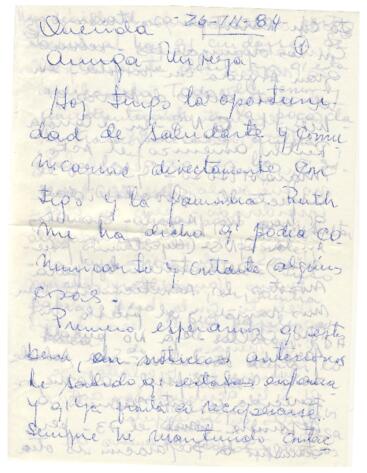 Querida -26-IV-84-
Amiga Mireya ①
Hoy tengo la oportuni
dad de saludarte y comu
nicarme directamente con
tigo y la familia. Ruth
me ha dicho q. podia co
municarte y contarte algunas
cosas.
Primero, esperamos q. estés
bien, en noticias anteriores
he sabido q. estabas enferma
y q. ya
Siempre he mantenido contac-